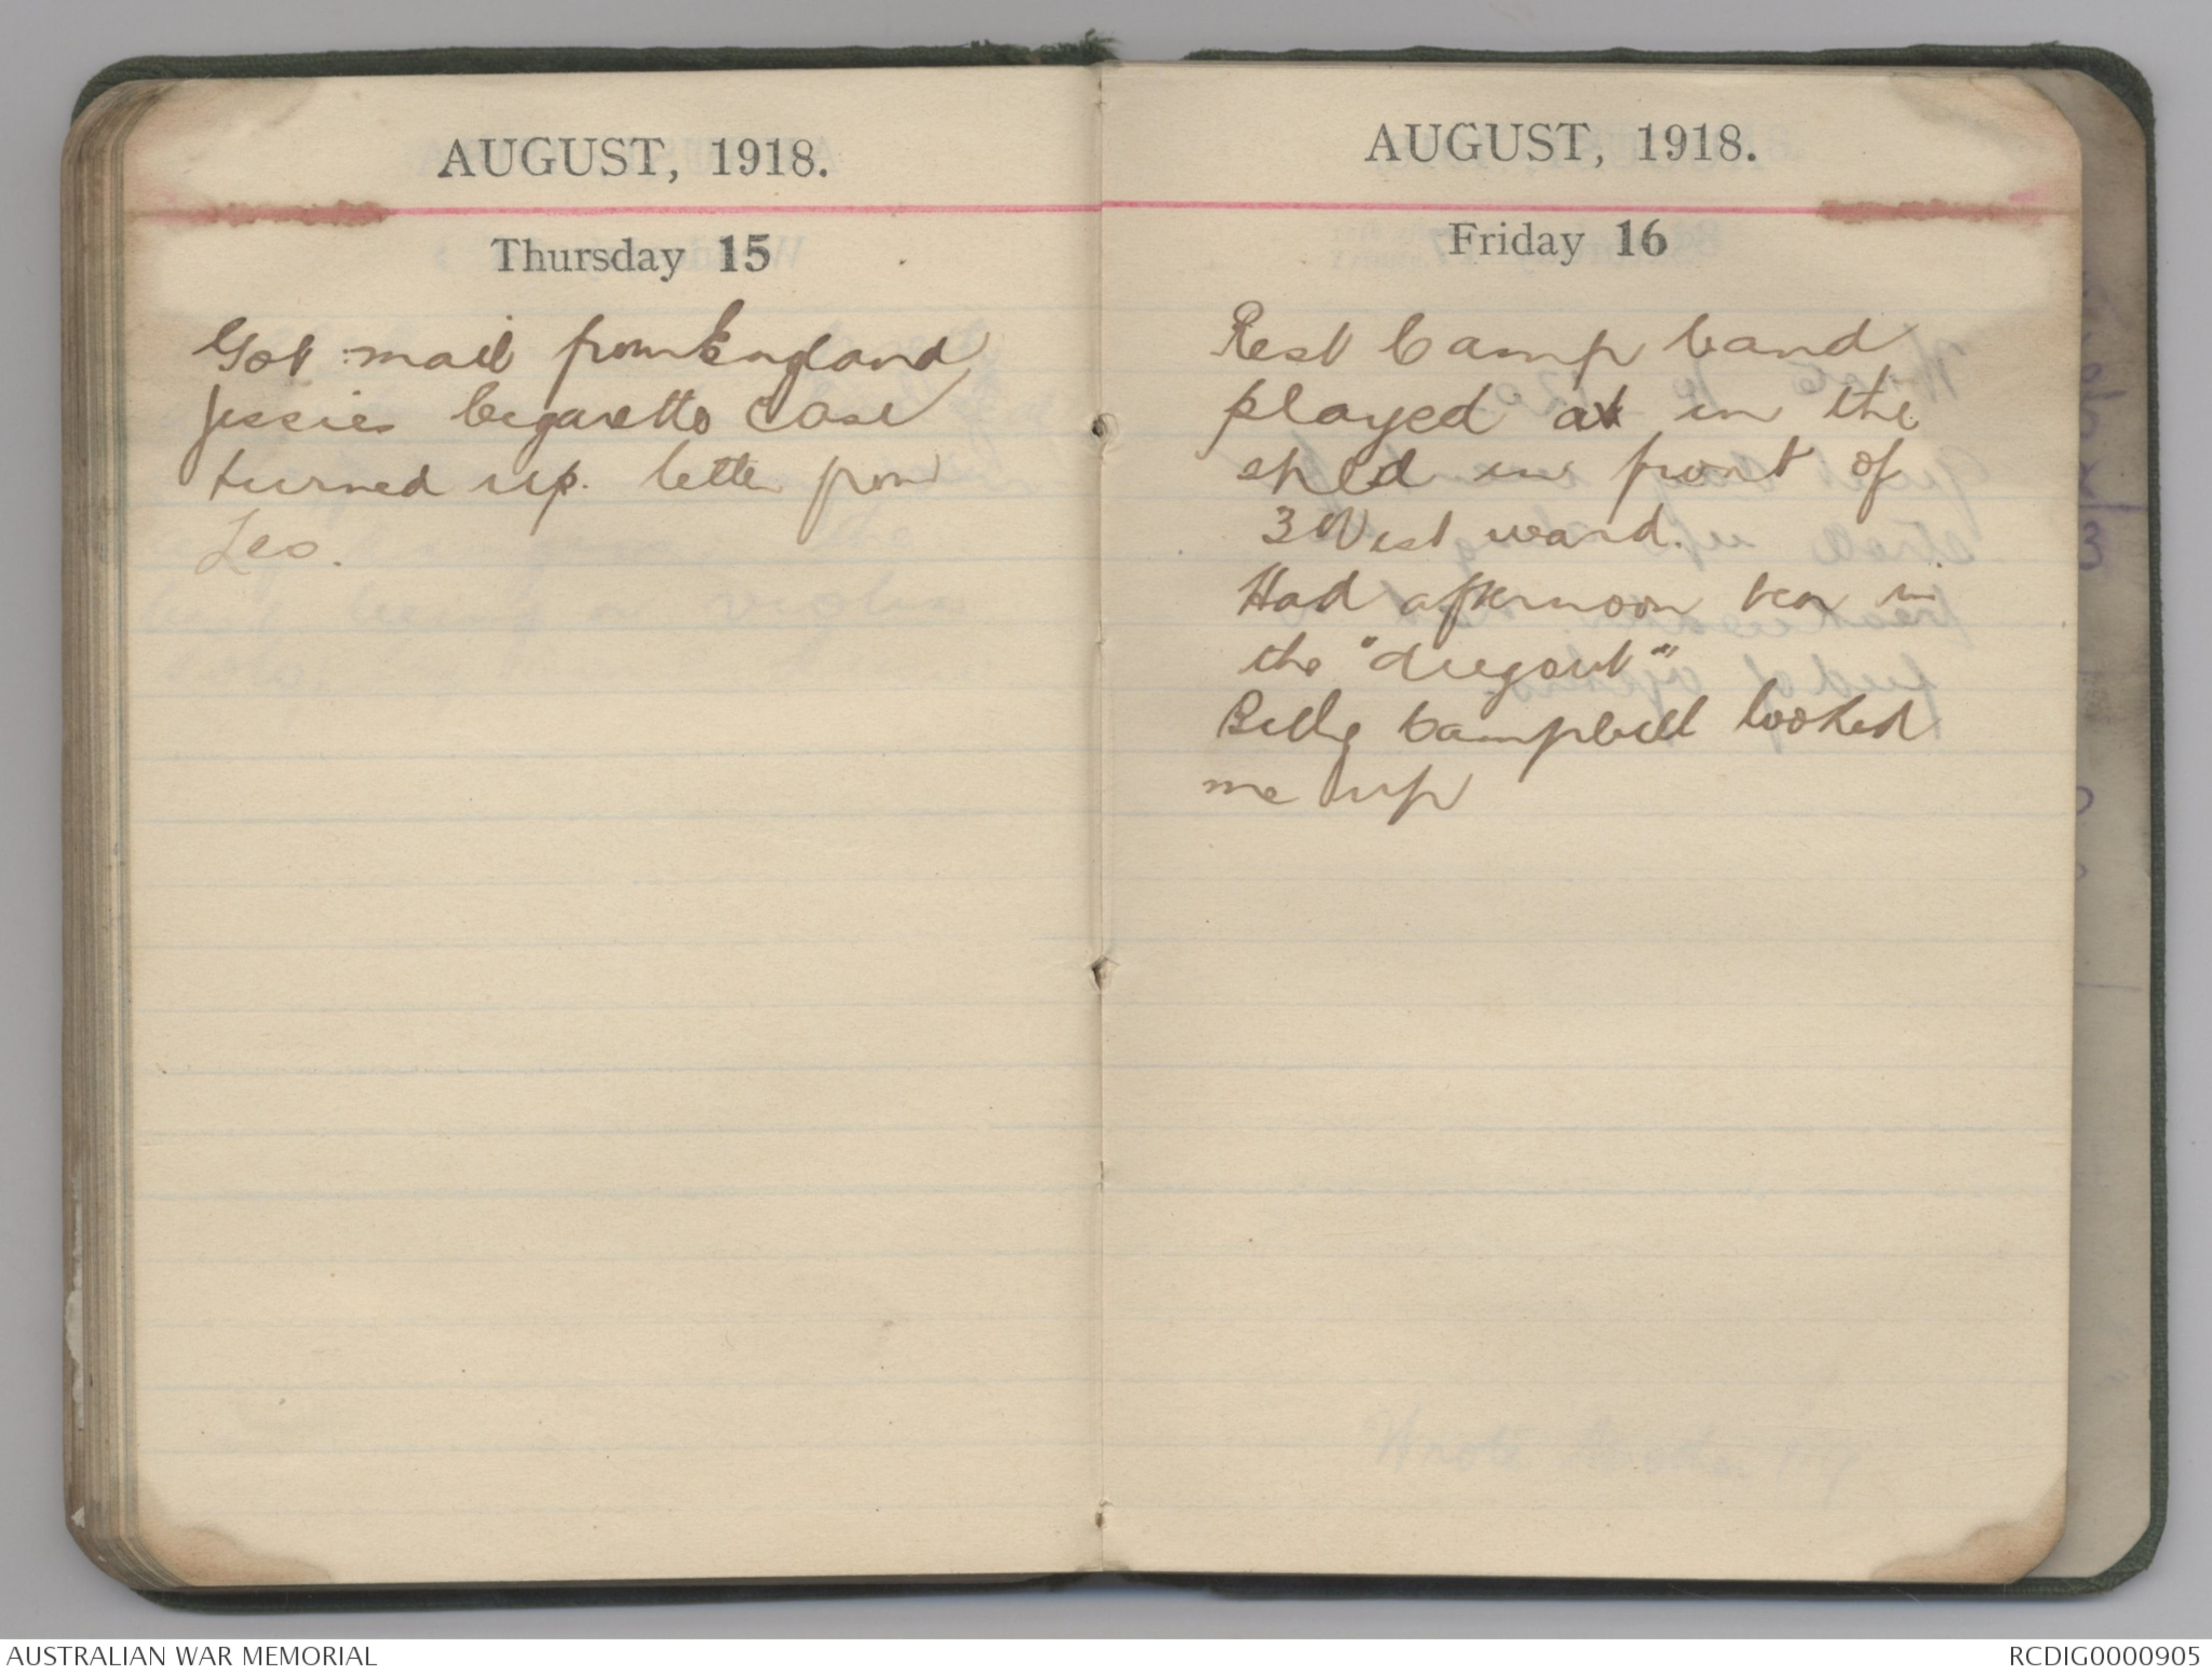 AUGUST, 1918.
Thursday 15
Got mail from England
Jessies Cigarette Case
turned up. letter from
Leo.
AUGUST, 1918.
Friday 16
Rest Camp band
played at in the
shed in front of
3 West ward.
Had afternoon tea in
the "dugout"
Billy Campbell looked
me up
AUSTRALIAN WAR MEMORIAL
RCDIG0000905